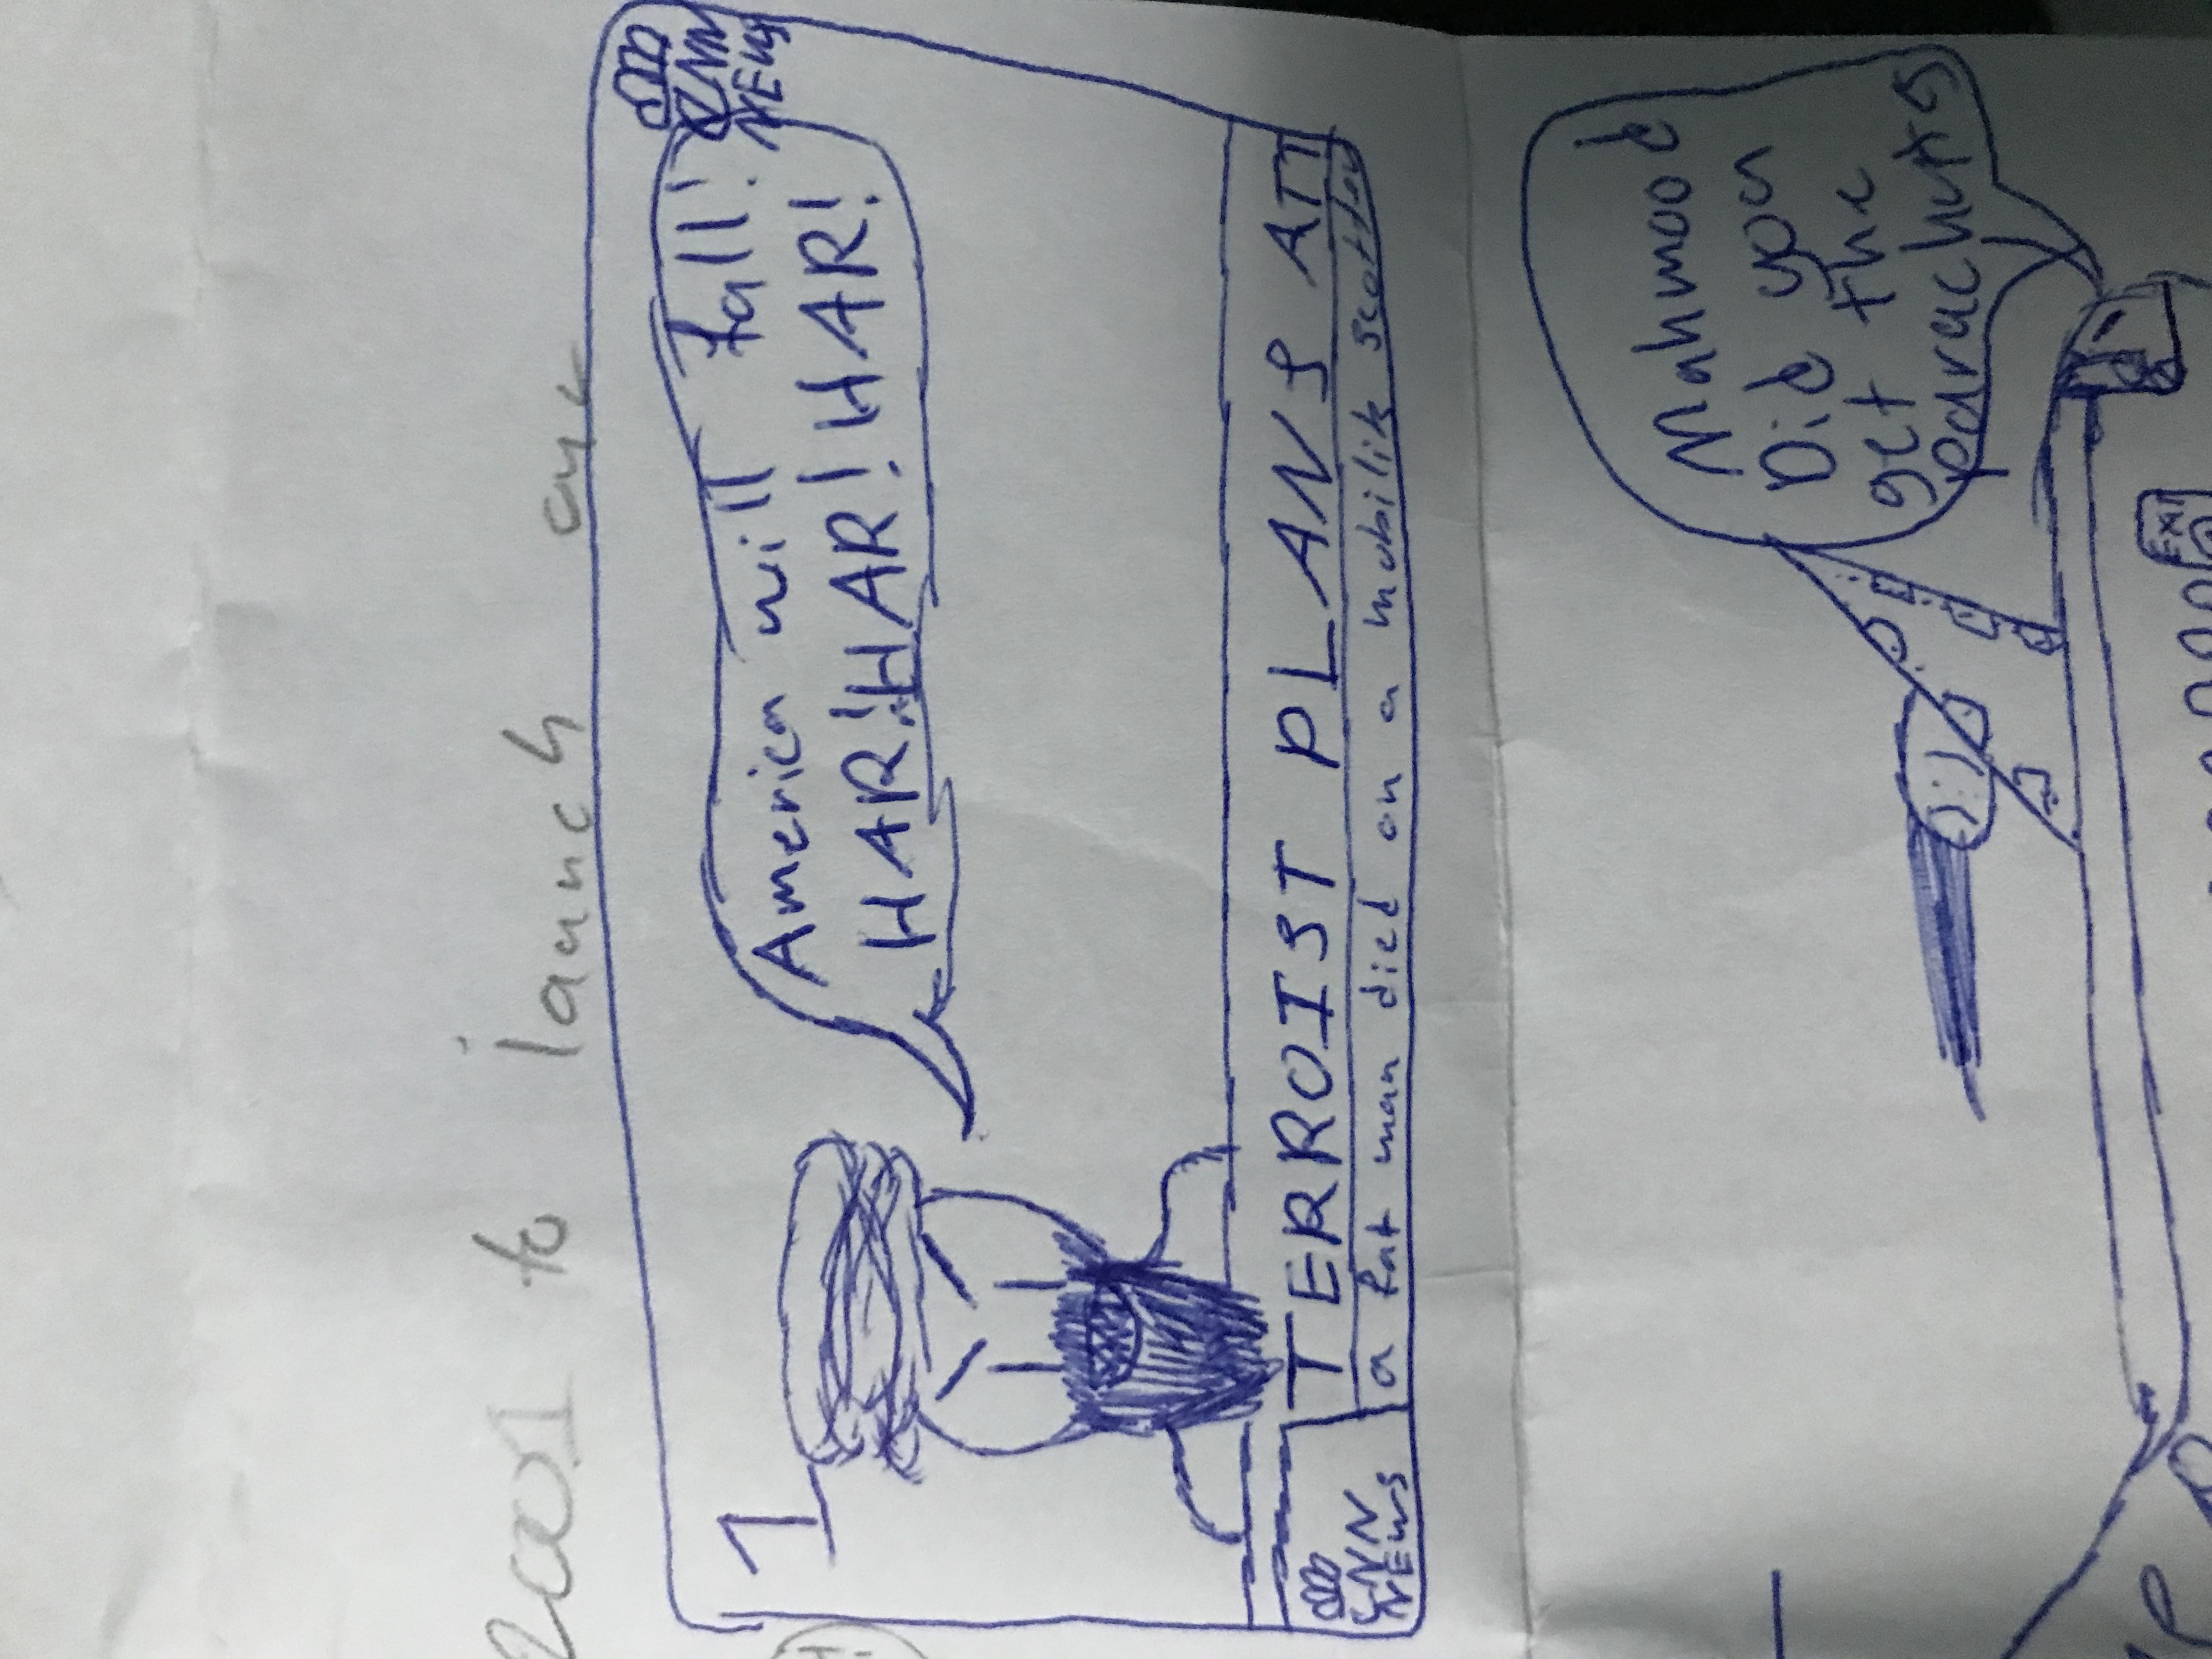 2001 to launch one
1
America will fall!
HAR! HAR! HAR!
CNN
NEWS
TERROIST PLANS ATT
CNN
NEWS
a fat man died on a mobility scotter
Mahmood
Did you
get the
parachutes
EXIT